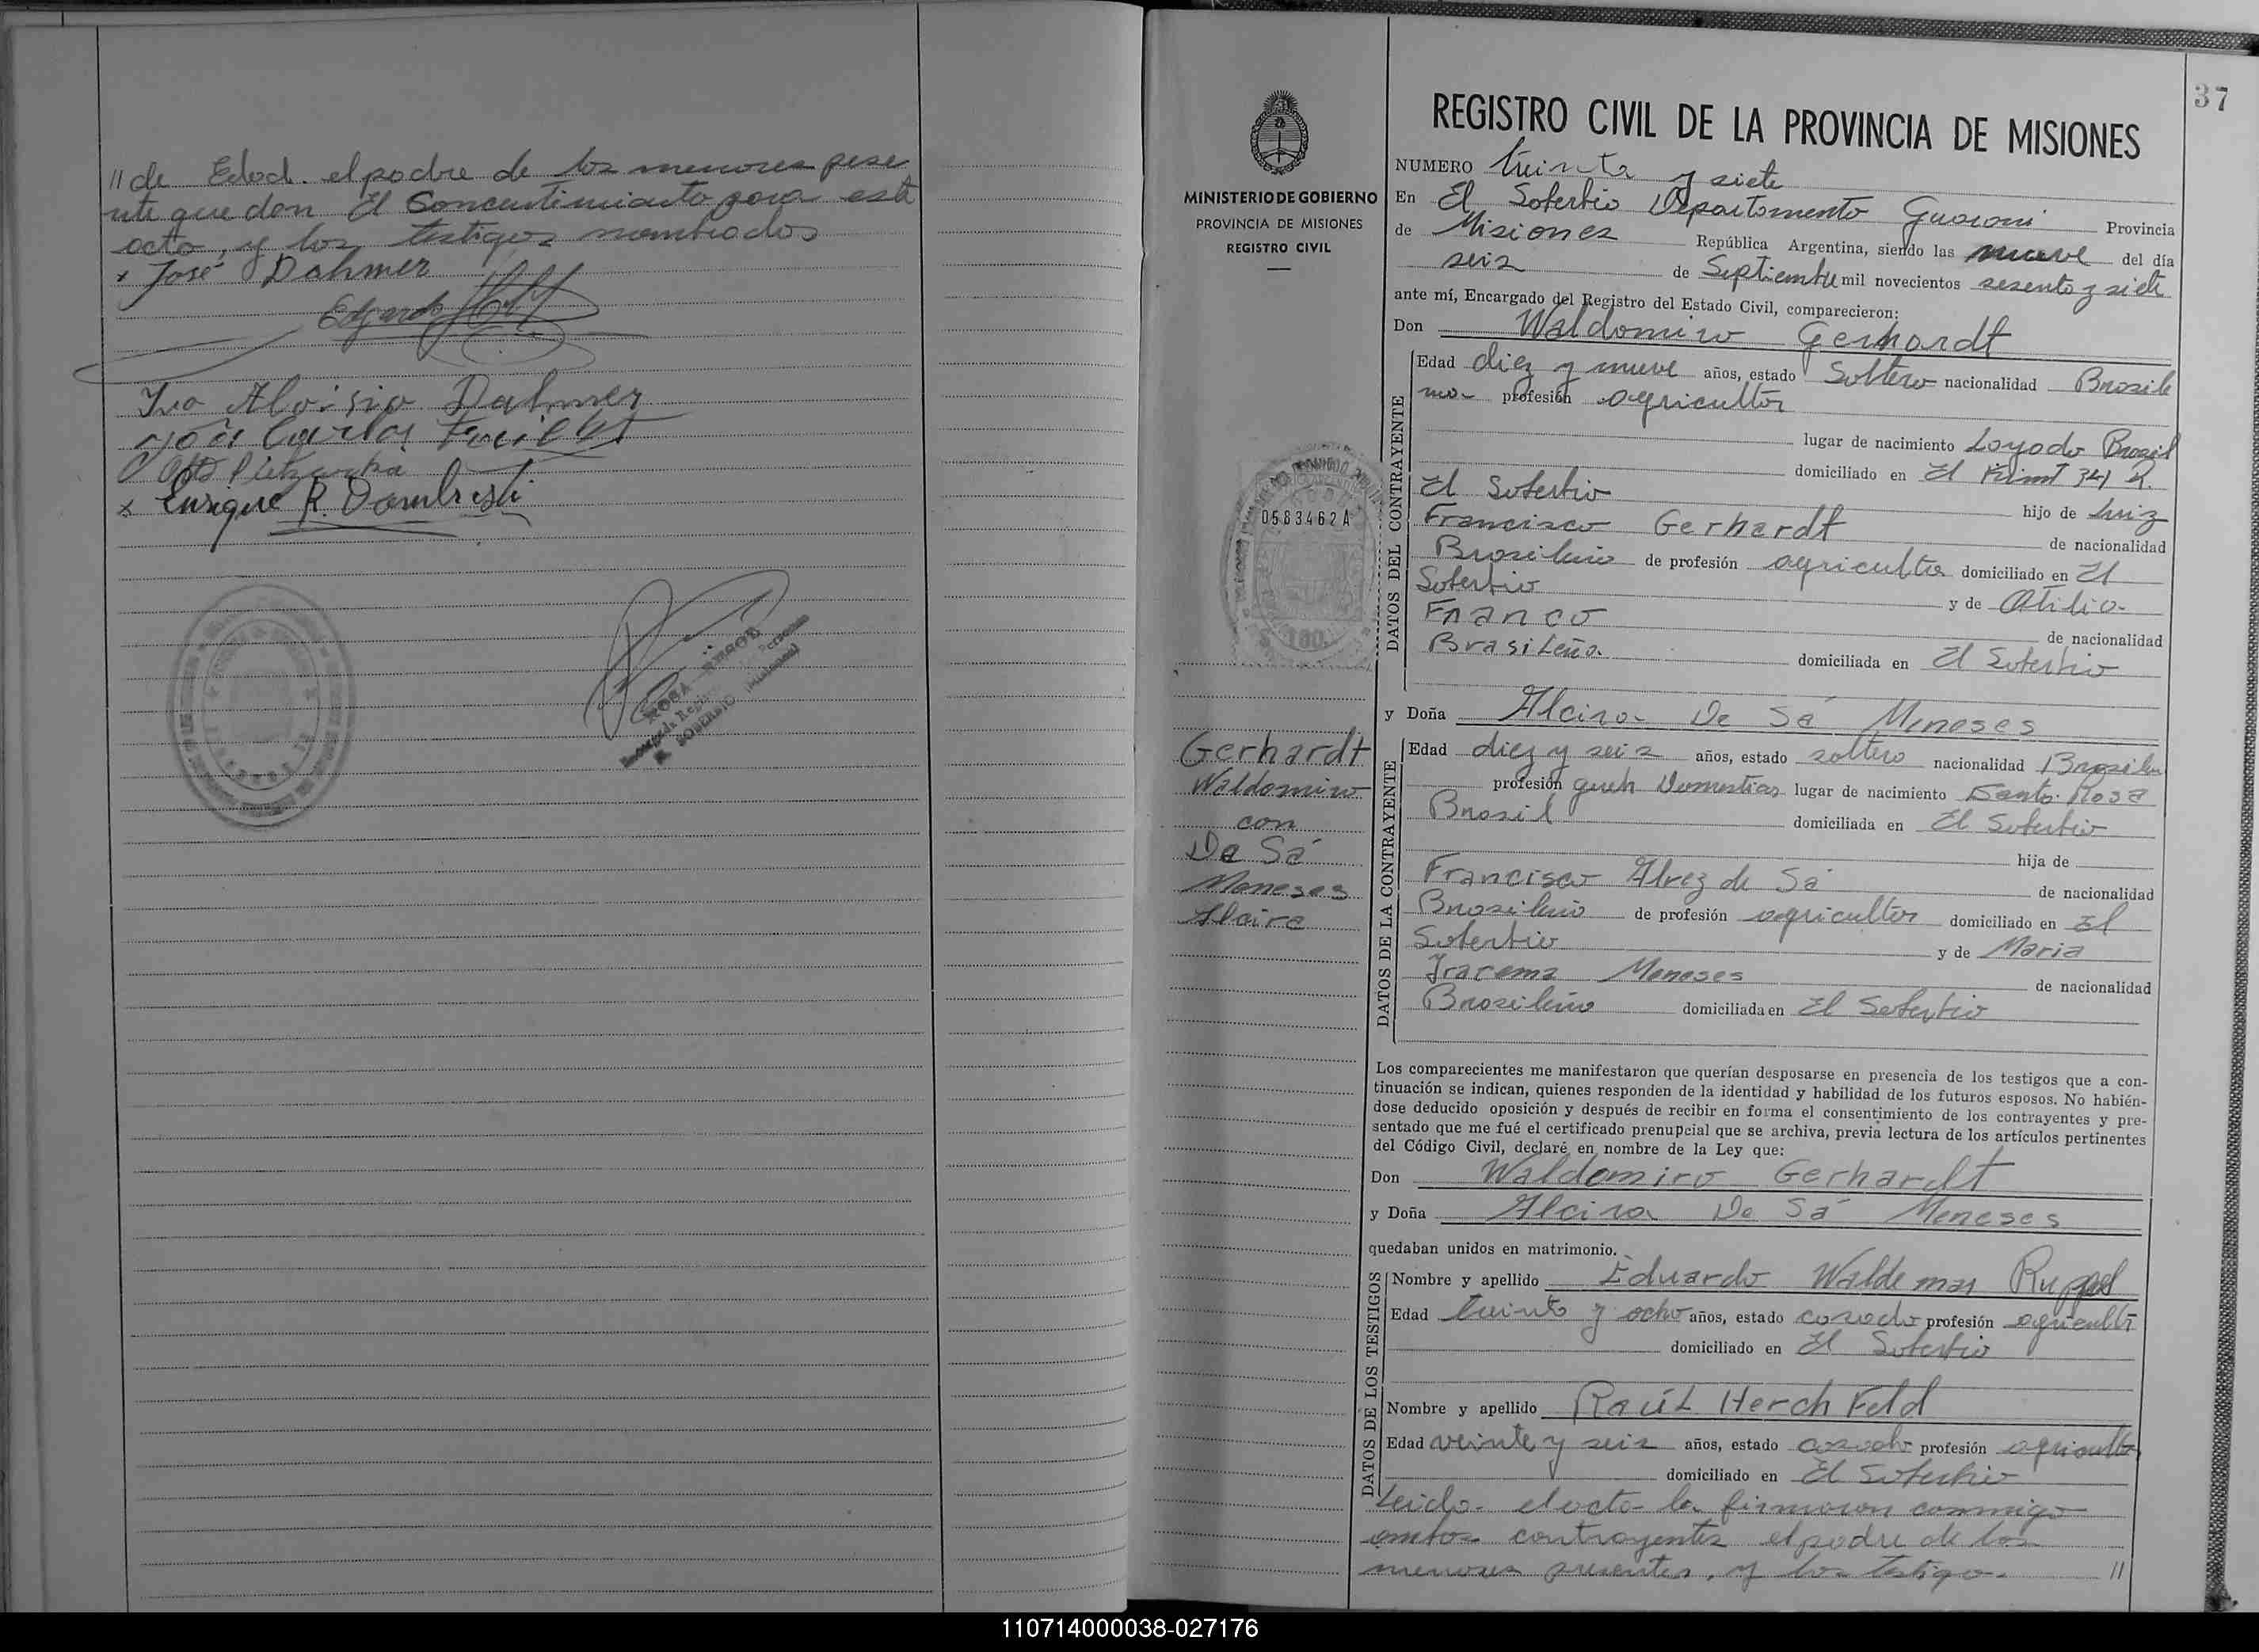 // de Edad. el padre de los menores prese
nte que dan El Concentimiento para este
acto, y los testigos nombrados
x José Dahmer
Edgardo
Ivo Aloisio Dahmer
Carlos
Otto
x Enrique R. Dambrosi
37
REGISTRO CIVIL DE LA PROVINCIA DE MISIONES
MINISTERIO DE GOBIERNO
PROVINCIA DE MISIONES
REGISTRO CIVIL
NUMERO treinta y siete
En El Soberbio Departamento Guarani Provincia
de Misiones República Argentina, siendo las nueve del día
seis de Septiembre mil novecientos sesenta y siete
ante mí, Encargado del Registro del Estado Civil, comparecieron:
Don Waldomiro Gerhardt
DATOS DEL CONTRAYENTE
Edad diez y nueve años, estado Soltero nacionalidad Brasile
no- profesión agricultor
lugar de nacimiento Loyado Brasil
domiciliado en El
El Soberbio hijo de Luiz
Francisco Gerhardt de nacionalidad
Brasileño de profesión agricultor domiciliado en El
Soberbio y de Otilia
Franco de nacionalidad
Brasileña domiciliada en El Soberbio
0583462A
y Doña Alcira De Sá Meneses
DATOS DE LA CONTRAYENTE
Edad diez y seis años, estado soltero nacionalidad Brasileñ
profesión queh Domesticos lugar de nacimiento Santo Rosa
Brasil domiciliada en El Soberbio
hija de
Francisco Alvez de Sá de nacionalidad
Brasileño de profesión agricultor domiciliado en El
Soberbio y de Maria
Iracema Meneses de nacionalidad
Brasileño domiciliada en El Soberbio
Gerhardt
Waldomiro
con
De Sá
Meneses
Alcira
Los comparecientes me manifestaron que querían desposarse en presencia de los testigos que a con-
tinuación se indican, quienes responden de la identidad y habilidad de los futuros esposos. No habién-
dose deducido oposición y después de recibir en forma el consentimiento de los contrayentes y pre-
sentado que me fué el certificado prenupcial que se archiva, previa lectura de los artículos pertinentes
del Código Civil, declaré en nombre de la Ley que:
Don Waldomiro Gerhardt
y Doña Alcira De Sá Meneses
quedaban unidos en matrimonio.
DATOS DE LOS TESTIGOS
Nombre y apellido Eduardo Waldemar Ruppel
Edad treinta y ocho años, estado casado profesión agricultr
domiciliado en El Soberbio
Nombre y apellido Raúl Herchfeld
Edad veinte y seis años, estado casado profesión agricultor
domiciliado en El Soberbio
Leido el acta la firmaron conmigo
ambos contrayentes el padre de los
menores presentes, y los testigo. //
110714000038-027176